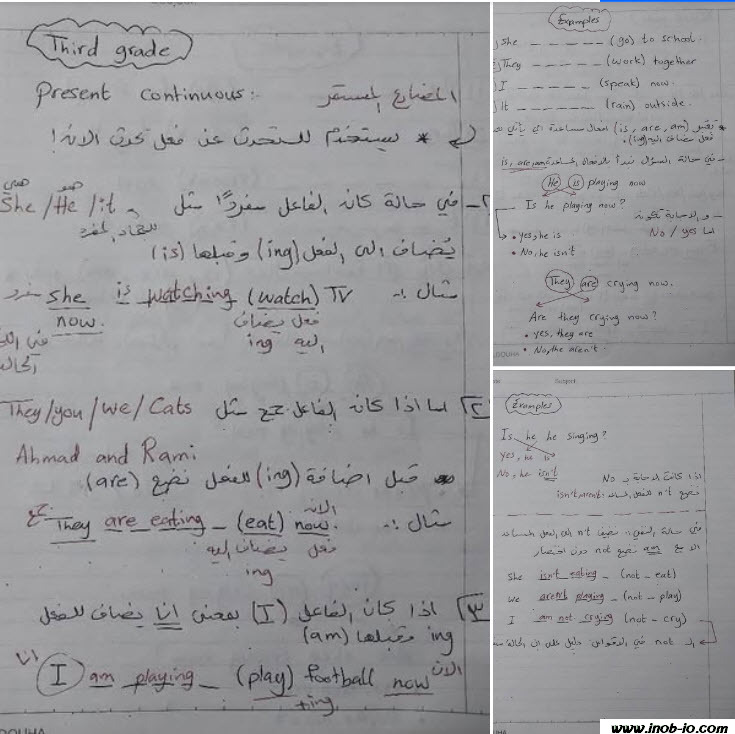 Third grade
Present continuous :- المضارع المستمر
* يستخدم للتحدث عن فعل يحدث الآن!
١- في حالة كان الفاعل مفردًا مثل She / He / it
هي هو
يُضاف الى الفعل (ing) وقبلها (is)
مثال :- She is watching (watch) TV
now.
فعل يضاف
اليه ing
٢ اما اذا كان الفاعل جمع مثل They/you/we/Cats
Ahmad and Rami
قبل اضافة (ing) للفعل نضع (are)
مثال :- They are eating - (eat) now. الان
جمع
فعل يضاف اليه
ing
٣ اذا كان الفاعل (I) بمعنى انا يضاف للفعل
ing وقبلها (am)
انا I am playing - (play) football now الان
+ing
Examples
She _ _ _ _ _ (go) to school.
They _ _ _ _ _ (work) together
I _ _ _ _ _ (speak) now.
It _ _ _ _ _ (rain) outside.
* تعتبر (is, are, am) افعال مساعدة اي يأتي بعد
فعل مضاف اليه (ing).
- في حالة السؤال نبدأ بالافعال المساعدة is, are, am
He is playing now
Is he playing now?
- والاجابة تكون
اما No / yes
• yes, he is
• No, he isn't
They are crying now.
Are they crying now?
• yes, they are
• No, the aren't.
Subject:
Examples
Is he he singing?
yes, he is
No, he isn't
اذا كانت الاجابة بـ No
نضع n't للفعل المساعد isn't/aren't
في حالة النفي :- نضيف n't الى الفعل المساعد
الا مع am نضع not دون اختصار
She isn't eating - (not - eat)
we aren't playing - (not - play)
I am not crying (not - cry)
الـ not في الاقواس دليل على ان الحالة
www.inob-io.com